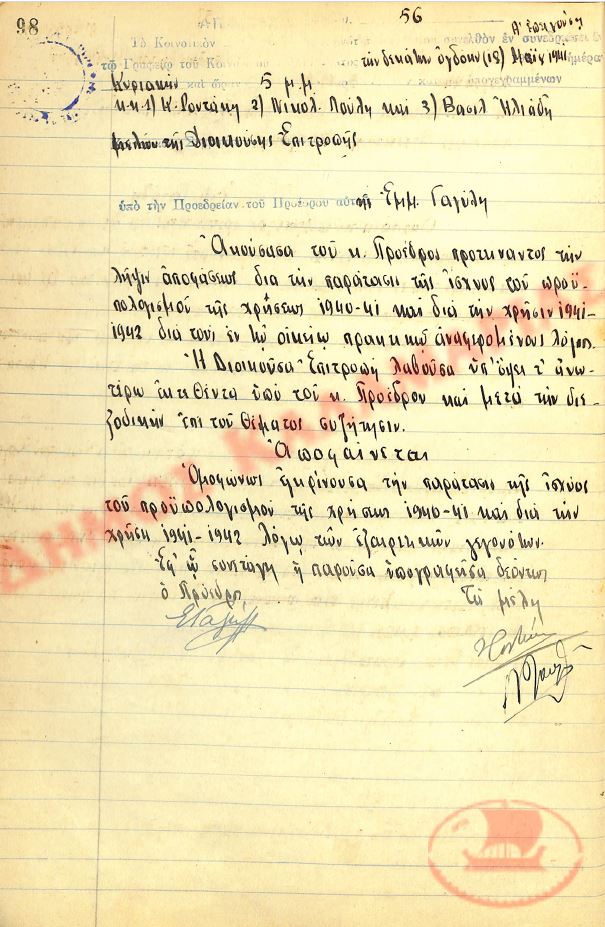 98
56
Α' ἐπειγούση
Τὸ Κοινοτικὸν συνελθὸν ἐν συνεδριάσει ἐν
τῷ Γραφείῳ τοῦ Κοινο τὴν δεκάτην ὄγδοην (18) Μαΐου 1941 ἡμέρα
Κυριακὴν καὶ ὥραν 5 μ μ ὑπογεγραμμένων
κ.κ 1) Κ. Ροντάκη 2) Νικολ. Πούλη καὶ 3) Βασιλ Ἠλιάδη
μελῶν τῆς Διοικούσης Ἐπιτροπῆς
ὑπὸ τὴν Προεδρείαν τοῦ Προέδρου αὐτῆς Ἐμμ. Γαγύλη
Ἀκούσασα τοῦ κ. Προέδρος προτείναντος τὴν
λῆψιν ἀποφάσεως διὰ τὴν παράτασι τῆς ἰσχύος τοῦ προϋ-
πολογισμοῦ τῆς χρήσεως 1940-41 καὶ διὰ τὴν χρῆσιν 1941-
1942 διὰ τοὺς ἐν τῷ οἰκείῳ πρακτικῷ ἀναφερομένους λόγους.
Ἡ Διοικοῦσα Ἐπιτροπὴ λαβοῦσα ὑπ' ὄψει τ' ἀνω-
τέρω ἐκτεθέντα ὑπὸ τοῦ κ. Προέδρου καὶ μετὰ τὴν διε-
ξοδικὴν ἐπὶ τοῦ θέματος συζήτησιν.
Ἀποφαίνεται
Ὁμοφώνως ἐγκρίνουσα τὴν παράτασι τῆς ἰσχύος
τοῦ προϋπολογισμοῦ τῆς χρήσεως 1940-41 καὶ διὰ τὴν
χρῆσιν 1941-1942 λόγῳ τῶν ἐξαιρετικῶν γεγονότων.
Ἐφ' ᾧ συνετάγη ἡ παροῦσα ὑπογραφεῖσα δεόντως
ὁ Πρόεδρος Τὰ μέλη
ΔΗΜΟΣ ΚΑΛΑΜΑΡΙΑΣ